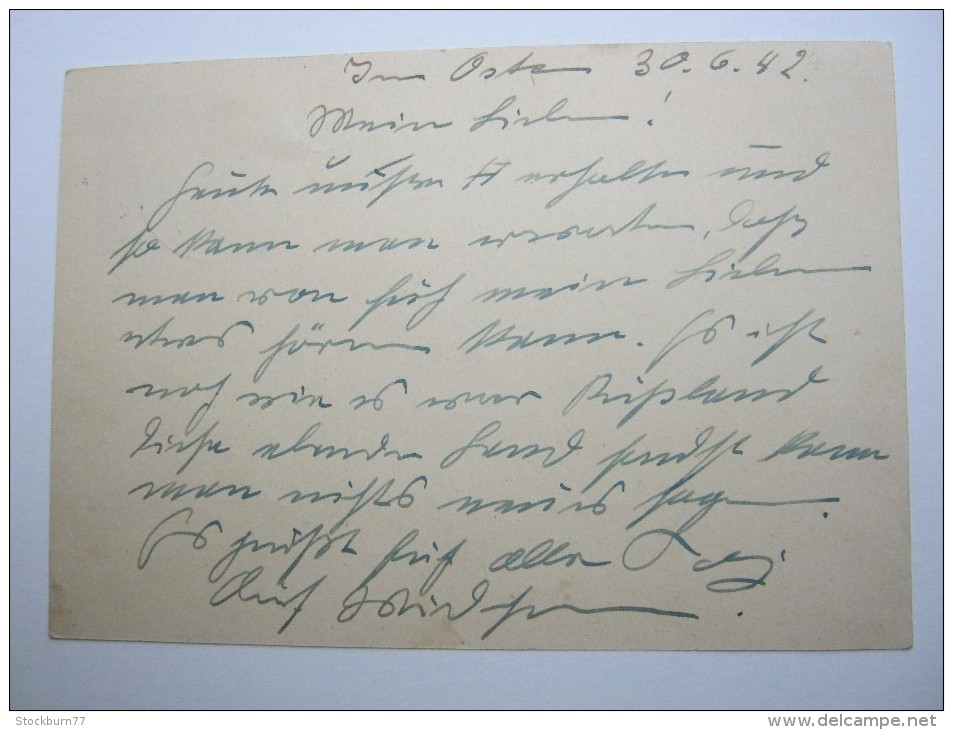 Im Osten 30.6.42.
Meine Lieben!
Heute unsere erhalten und
so kann man erwarten, daß
man von Euch meine Lieben
etwas hören kann. Es ist
noch wie es war Rußland
diese elende Land sonst kann
man nichts neues sagen.
Es grüßt Euch alle
Auf Wiedsehen!
Stockburn77
www.delcampe.net